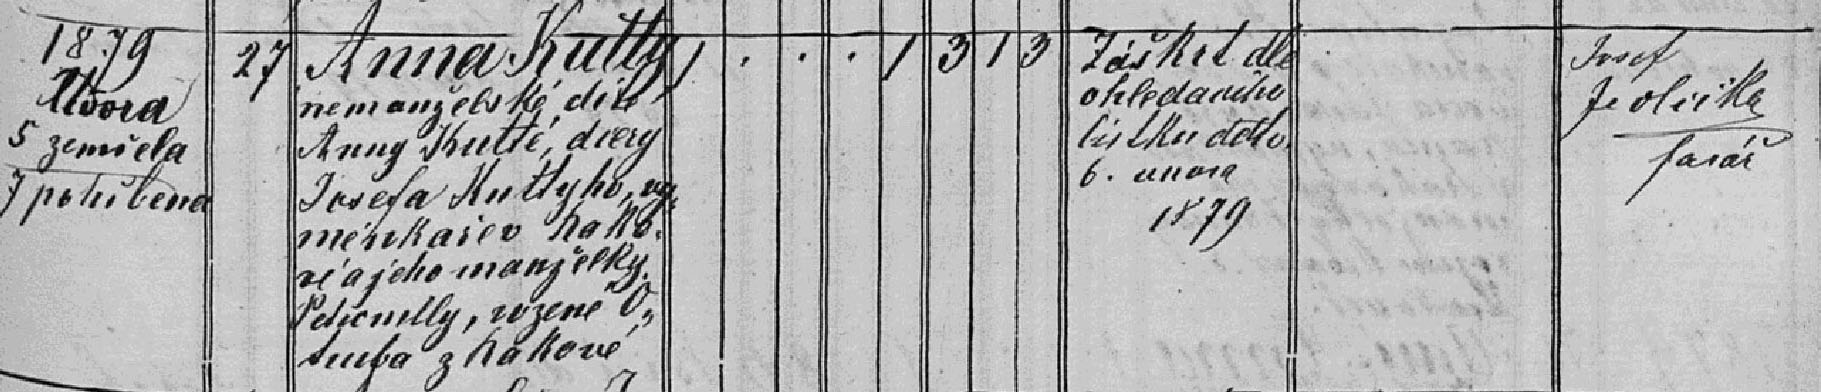 1879
Února
5 zemřela
7 pohřbena
27
Anna Kutty
nemanželské dítě
Anny Kutté, dcery
Josefa Kuttyho, vý-
měnkáře v Kako-
vé a jeho manželky
Petronilly, rozené O-
z Kakové
1 . . . 1 3 1 3
Záškrt dle
ohledacího
lístku ddto.
6. února
1879
Josef
farář